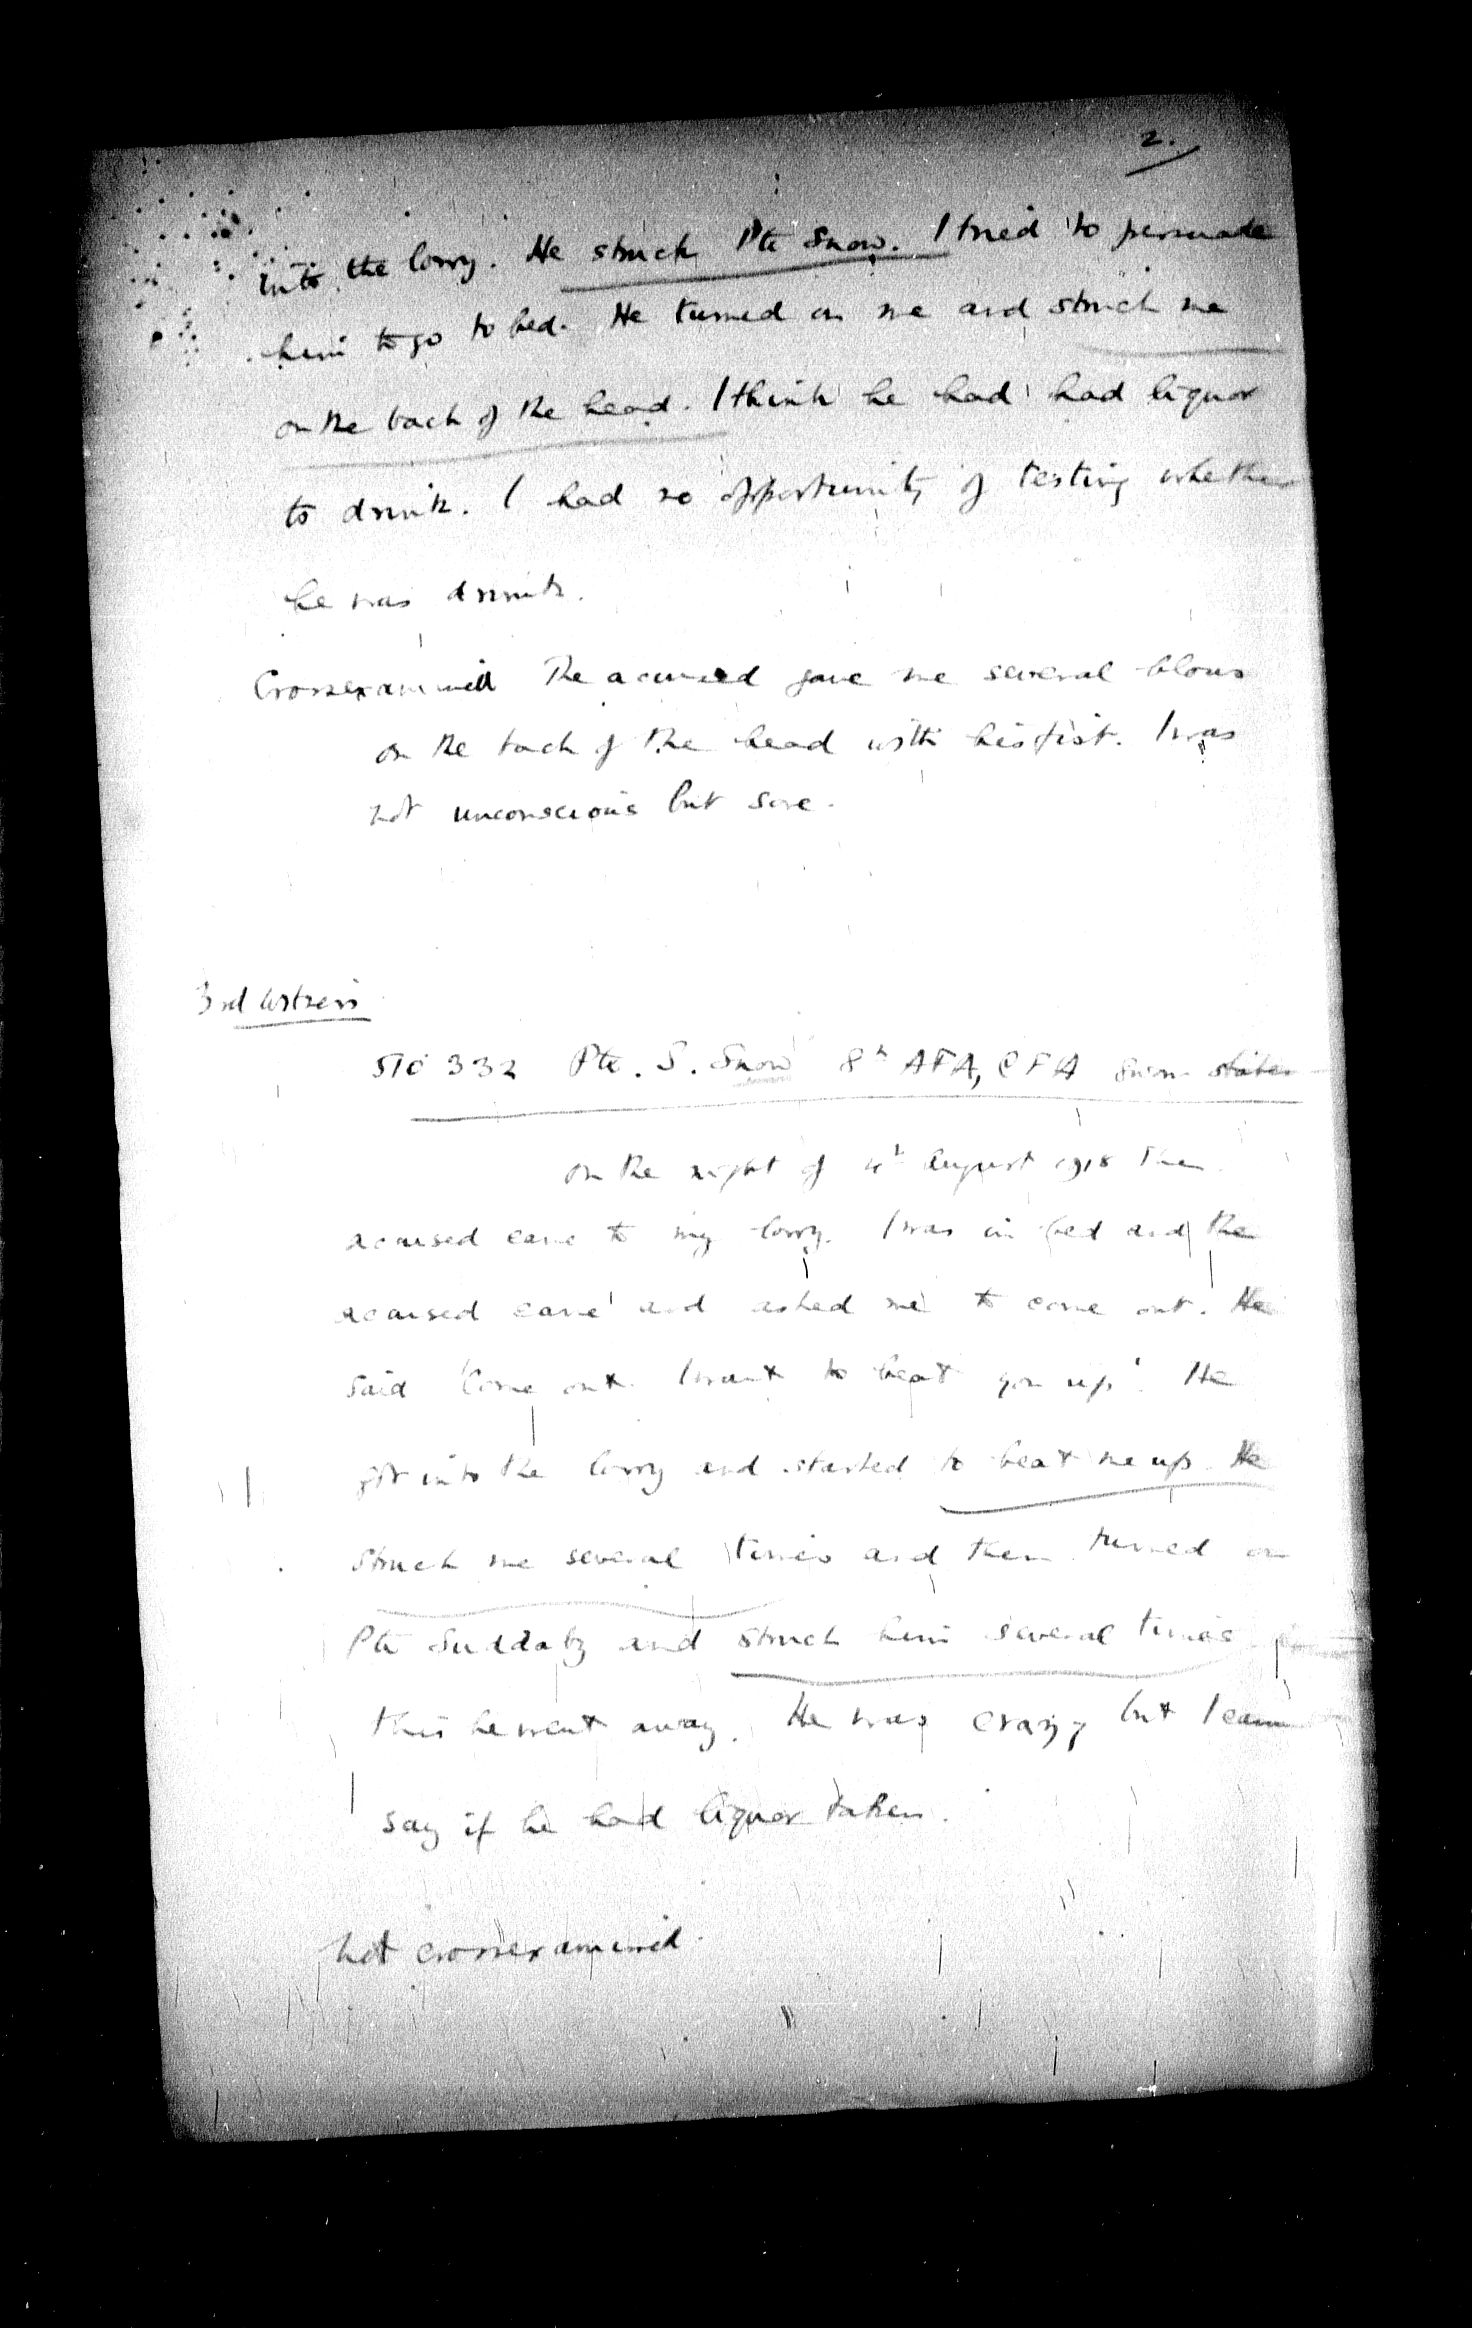 2.
into the lorry. He struck Pte Snow. I tried to persuade
him to go to bed. He turned on me and struck me
on the back of the head. I think he had had liquor
to drink. I had no opportunity of testing whether
he was drunk.
Crossexamined The accused gave me several blows
on the back of the head with his fist. I was
not unconscious but sore.
3rd Witness
510332 Pte. S. Snow 8th AFA, CFA sworn states
On the night of 4th August 1918 the
accused came to my lorry. I was in bed and the
accused came and asked me to come out. He
said 'Come out I want to beat you up'. He
got into the lorry and started to beat me up. He
struck me several times and then turned on
Pte Suddaby and struck him several times
this he went away. He was crazy but I
say if he had liquor taken.
Not crossexamined.